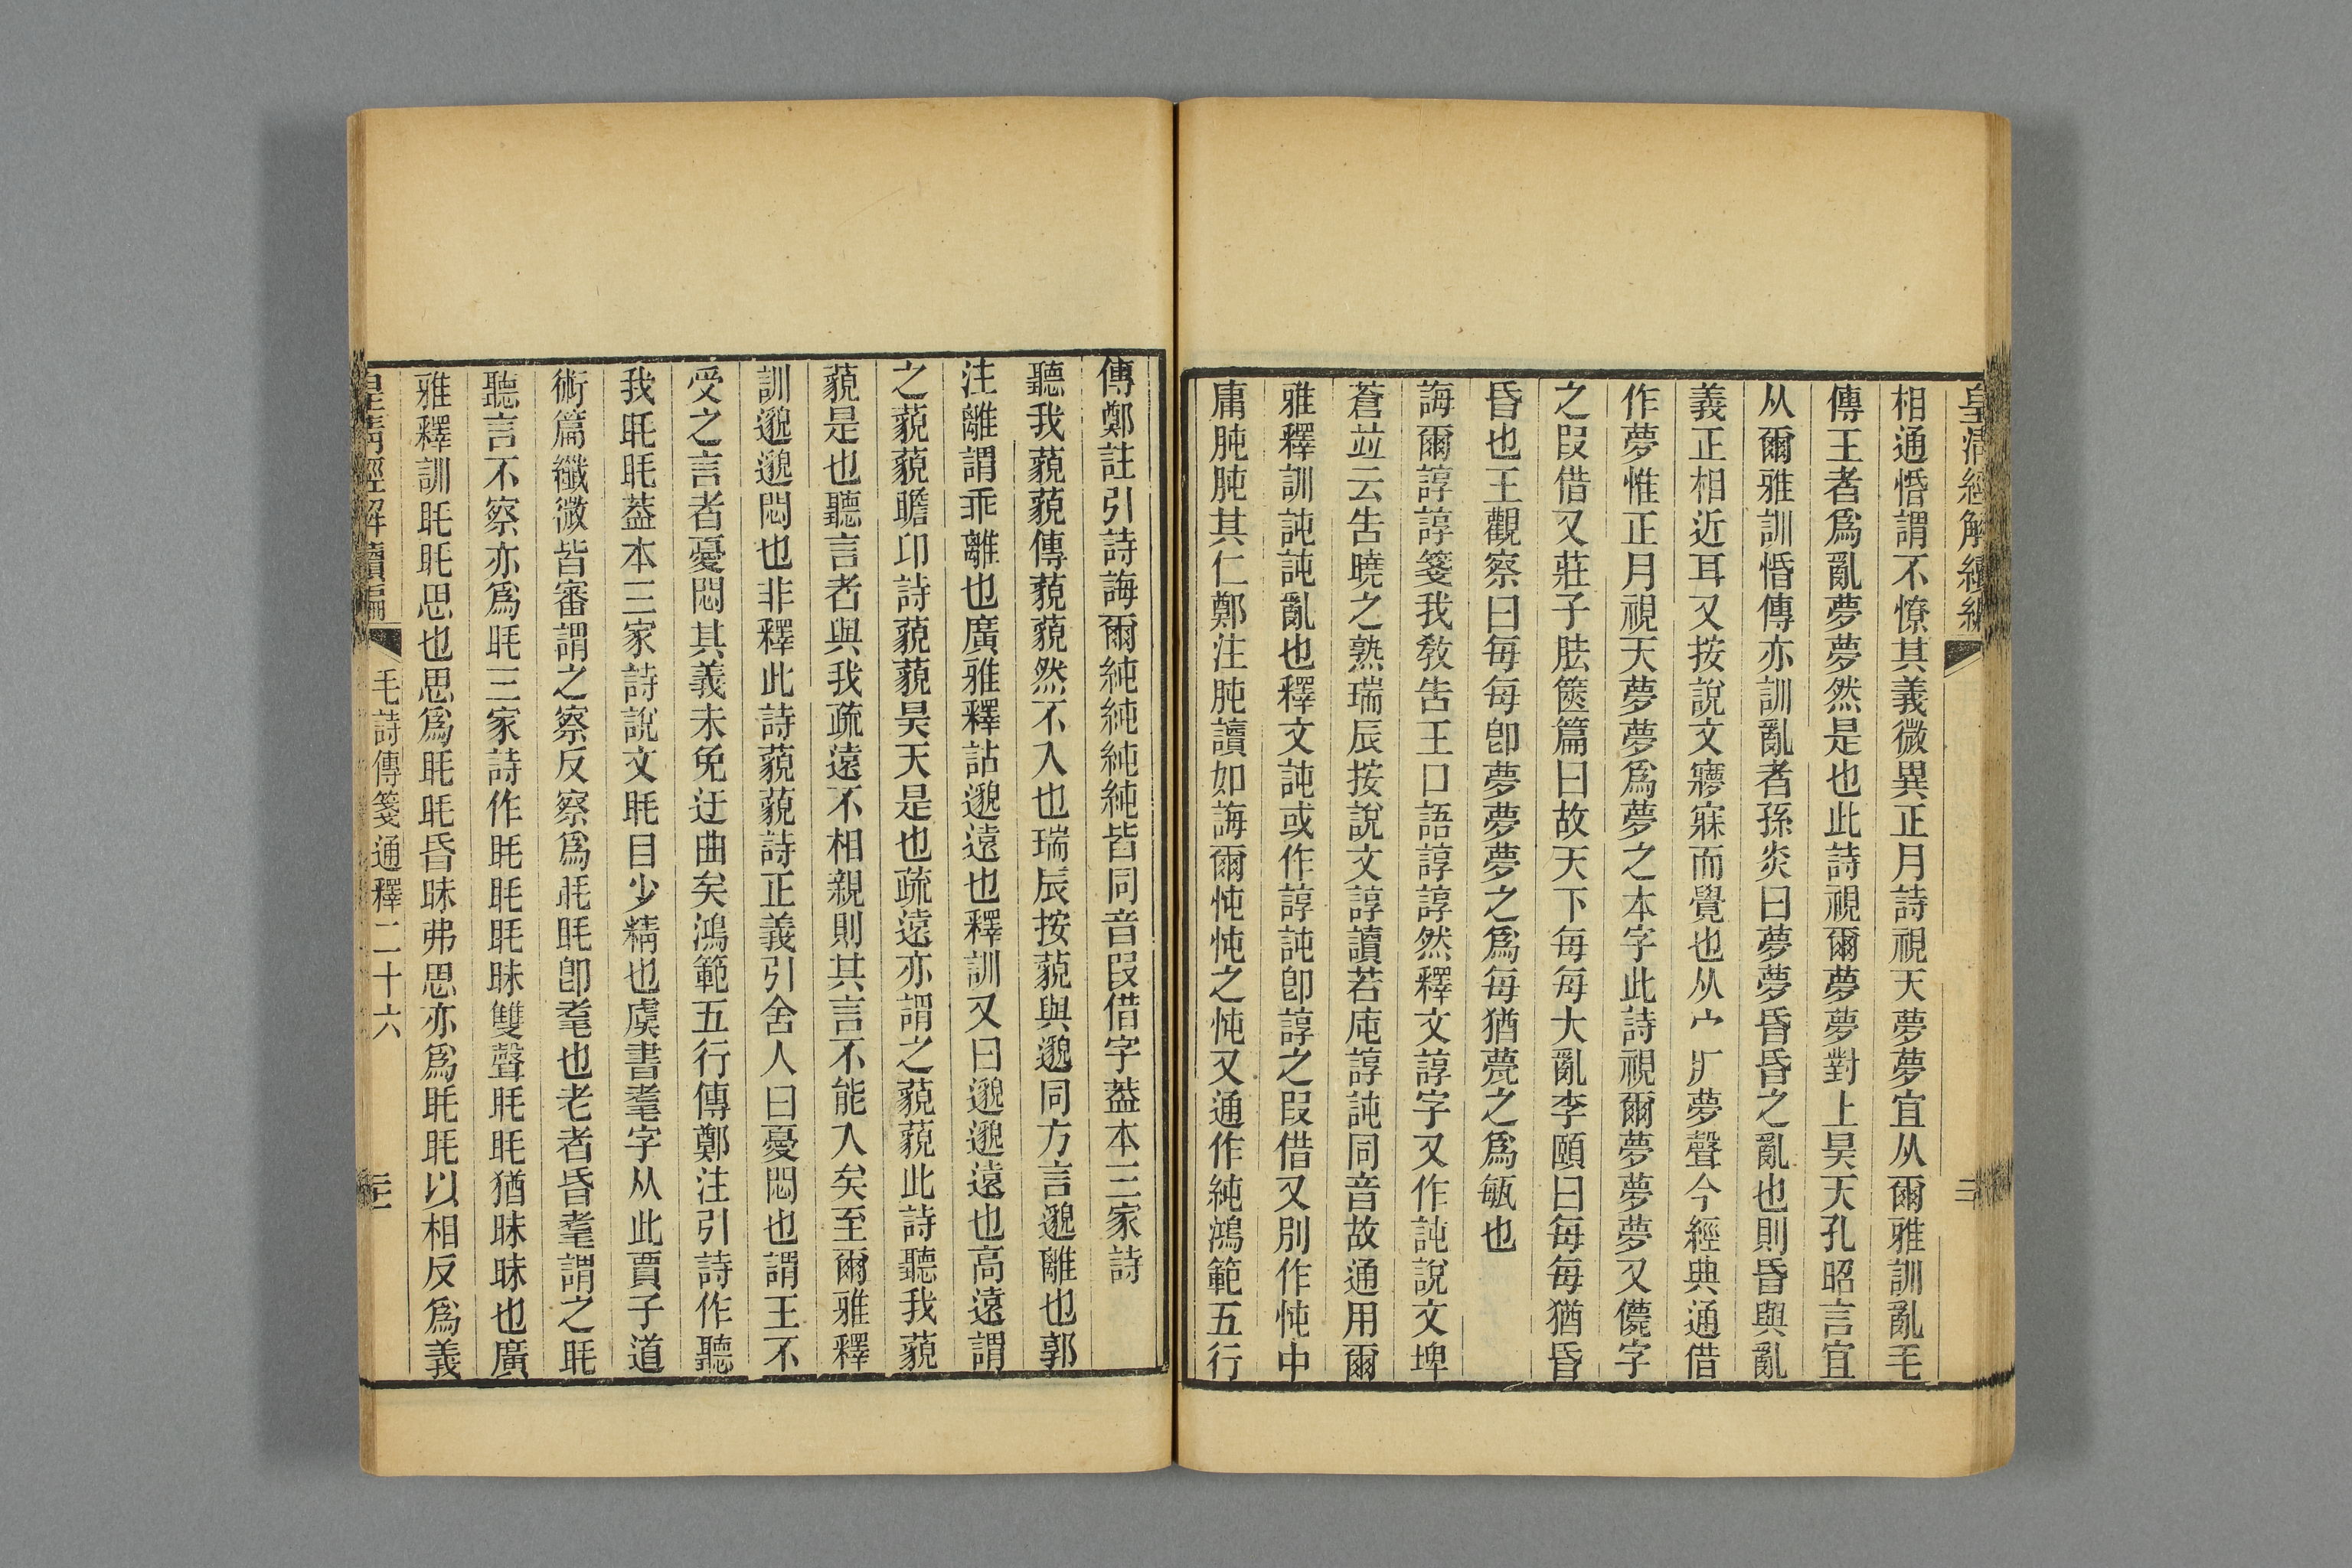 皇清經解續編
相通惛謂不憭其義微異正月詩視天夢夢宜从爾雅訓亂毛
傳王者爲亂夢夢然是也此詩視爾夢夢對上昊天孔昭言宜
从爾雅訓惛傳亦訓亂者孫炎曰夢夢昏昏之亂也則昏與亂
義正相近耳又按說文㝱寐而覺也从宀爿夢聲今經典通借
作夢惟正月視天夢夢爲夢之本字此詩視爾夢夢又儚字
之叚借又莊子胠篋篇曰故天下每每大亂李頤曰每每猶昏
昏也王觀察曰每每卽夢夢夢之爲每猶甍之爲㼳也
誨爾諄諄箋我敎吿王口語諄諄然釋文諄字又作訰說文埤
蒼並云吿曉之熟瑞辰按說文諄讀若庉諄訰同音故通用爾
雅釋訓訰訰亂也釋文訰或作諄訰卽諄之叚借又別作忳中
庸肫肫其仁鄭注肫讀如誨爾忳忳之忳又通作純鴻範五行
傳鄭註引詩誨爾純純純純皆同音叚借字葢本三家詩
聽我藐藐傳藐藐然不入也瑞辰按藐與邈同方言邈離也郭
注離謂乖離也廣雅釋詁邈遠也釋訓又曰邈邈遠也高遠謂
之藐藐瞻卬詩藐藐昊天是也疏遠亦謂之藐藐此詩聽我藐
藐是也聽言者與我疏遠不相親則其言不能入矣至爾雅釋
訓邈邈悶也非釋此詩藐藐詩正義引舍人曰憂悶也謂王不
受之言者憂悶其義未免迂曲矣鴻範五行傳鄭注引詩作聽
我眊眊葢本三家詩說文眊目少精也虞書耄字从此賈子道
術篇纖微皆審謂之察反察爲眊眊卽耄也老者昏耄謂之眊
聽言不察亦爲眊三家詩作眊眊眊昧雙聲眊眊猶昧昧也廣
雅釋訓眊眊思也思爲眊眊昏昧弗思亦爲眊眊以相反爲義
皇淸經解續編 毛詩傳箋通釋二十六